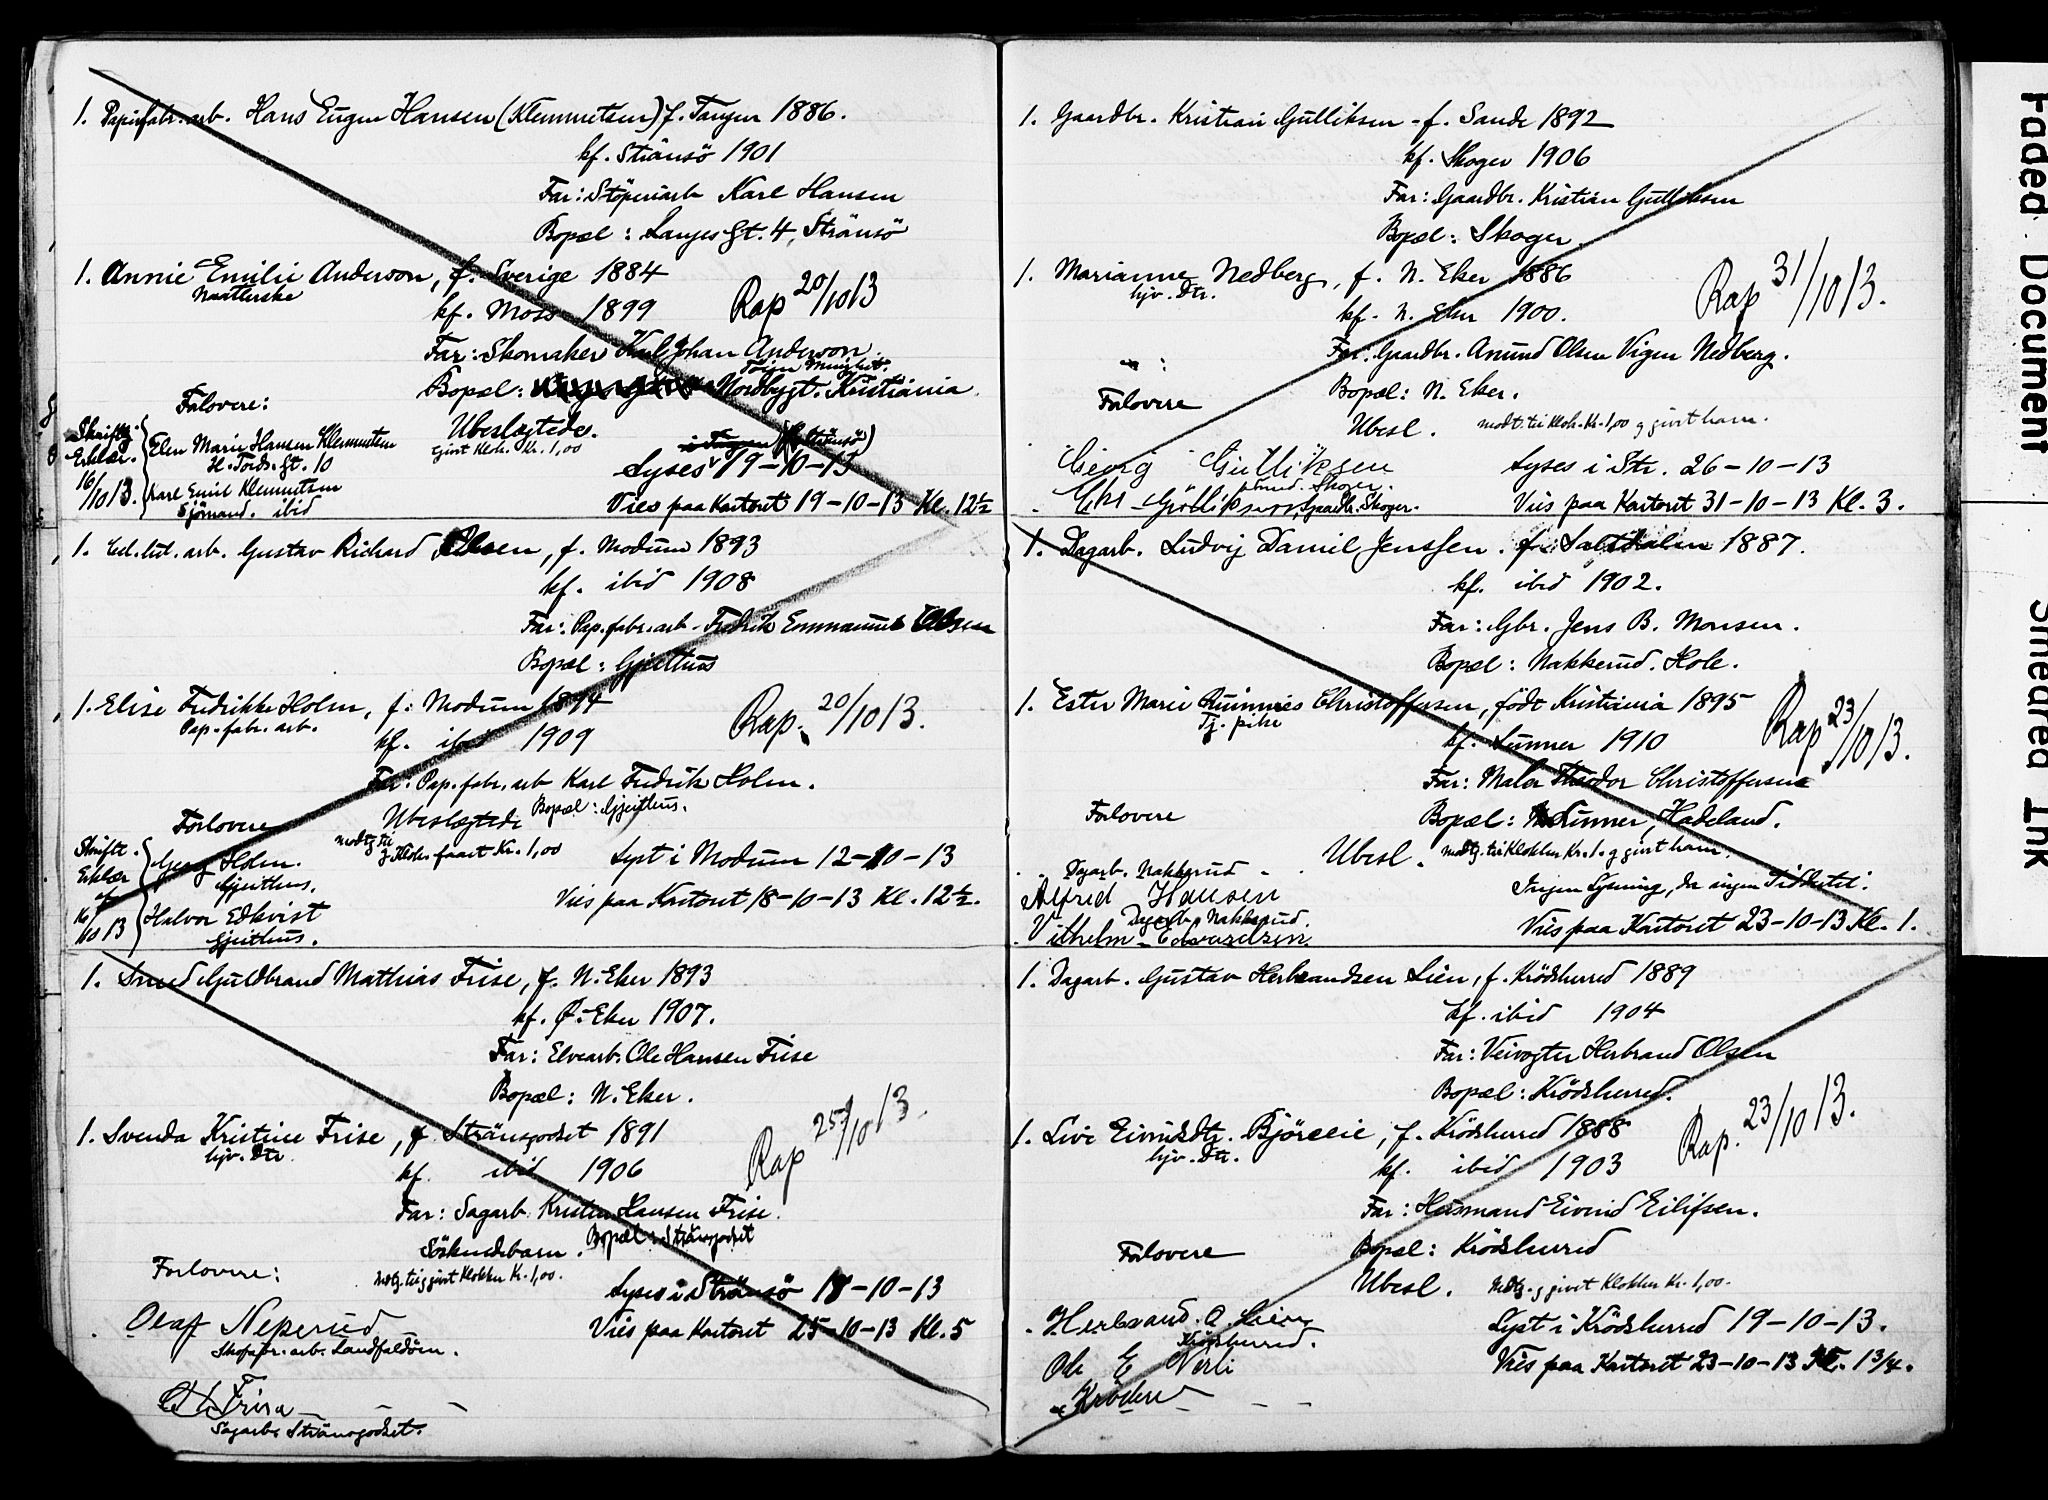 1. Papirfabr. arb. Hans Eugen Hansen (Klemmetsen) f. Tangen 1886.
kf. Strömsö 1901
Far: Stöperiarb Karl Hansen
Bopæl: Langes Gt. 4, Strömsö
1. Annie Emilie Anderson, f. Sverige 1884
kf. Moss 1899
Rap 20/10 13
Far: Skomaker Karl Johan Anderson
Bopæl: Nordbygt. Kristiania
Forlovere:
Ubeslægtede.
givet Klok. Kr. 1,00
Skriftg. Erklær. 16/10 13.
Elen Marie Hansen Klemmetsen
H. Tords. Gt. 10
Karl Emil Klemmetsen
Sjömand. ibid
Lyses 19-10-13
Vies paa Kontoret 19-10-13 Kl. 12½
1. Cel. arb. Gustav Richard Olsen, f. Modum 1893
kf. ibid 1908
Far: Pap. fabr. arb. Fredrik Emmanuel Olsen
Bopæl: Gjeithus
1. Elise Fredrikke Holm, f. Modum 1894
Pap. fabr. arb.
kf. ibid 1909
Rap. 20/10 13.
Far: Pap. fabr. arb Karl Fredrik Holm.
Bopæl: Gjeithus.
Forlovere
Ubeslægtede
Klok. faaet Kr. 1,00
Skriftl. Erklær af 16/10 13
Georg Holm.
Gjeithus.
Halvor Edkvist
Gjeithus.
Lyst i Modum 12-10-13
Vies paa Kontoret 18-10-13 Kl. 12½.
1. Smed Guldbrand Mathias Frise, f. N. Eker 1893
kf. Ø. Eker 1907.
Far: Elvearb. Ole Hansen Frise
Bopæl: N. Eker.
1. Svenda Kristine Frise, f. Strömsgodset 1891
hjv. Dtr.
kf. ibid 1906
Rap 25/10 13.
Far: Sagarb. Kristen Hansen Frise.
Bopæl: Strömsgodset
Söskendebarn.
Forlovere:
Lyses i Strömsö 18-10-13
Olaf Neperud
Skofabr. arb. Landfaldöien.
Vies paa Kontoret 25-10-13 Kl. 5
Frisa
Sagarb. Strömsgodset.
1. Gaardbr. Kristian Gulliksen f. Sande 1892
kf. Skoger 1906
Far: Gaardbr. Kristian Gulliksen
Bopæl: Skoger
1. Marianne Nedberg, f. N. Eker 1886
hjv. Dtr.
kf. N. Eker 1900.
Rap 31/10 13.
Far: Gaardbr. Anund Olsen Vigen Nedberg.
Forlovere
Bopæl: N. Eker.
Ubesl. modt. til Klok. Kr. 1,00 g givet ham.
Georg Gulliksen
Skoger.
Lyses i Str. 26-10-13
Chr Gulliksen, Gaardbr. Skoger.
Vies paa Kontoret 31-10-13 Kl. 3.
1. Dagarb. Ludvig Daniel Jenssen. f. Saltdalen 1887.
kf. ibid 1902.
Far: Gbr. Jens B. Monsen.
Bopæl: Nakkerud. Hole.
1. Ester Marie Christoffersen, födt Kristiania 1895
Tj. pike
kf. Lunner 1910
Rap 23/10 13.
Far: Maler Theodor Christoffersen
Forlovere
Bopæl: Lunner, Hadeland.
Ubesl. modtg. til Klokker Kr. 1. g givet ham.
Dagarb. Nakkerud
Alfred Hansen
Ingen Lysning,
Dagarb. Nakkerud
Vilhelm Edvardsen
Vies paa Kontoret 23-10-13 Kl. 1.
1. Dagarb. Gustav Herbrandsen Lien, f. Krödsherred 1889
kf. ibid 1904
Far: Veivogter Herbrand Olsen
Bopæl: Krödsherred.
1. Live Eivindsdtr. Björelie, f. Krödsherred 1888
hjv. Dtr.
kf. ibid 1903
Rap. 23/10 13.
Far: Husmand Eivind Eilifsen.
Forlovere
Bopæl: Krödsherred
Ubesl. Modtg. g givet Klokker Kr. 1,00.
Herbrand. O. Lien
Krödsherred.
Lyst i Krödsherred 19-10-13.
Ole E Nerli
Vies paa Kontoret 23-10-13 Kl. 1¾.
Faded Document
Smeared Ink